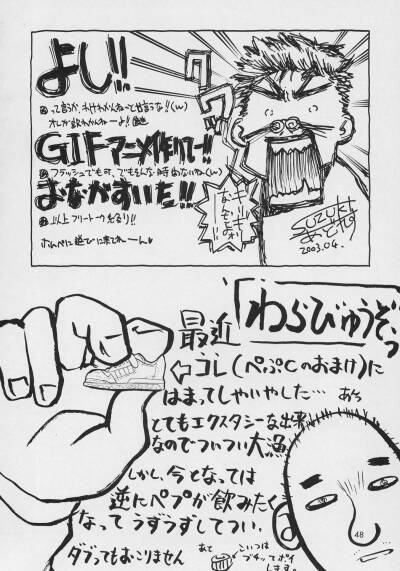 よし!!
って言うか、わけわかんねーって言うな!!(w)
オレが飲わかんねーよ!!
GIFアニメ作りてー!!
フラッシュでも可、でもそんな時間ないね(w)
おなかすいた!!
以上フリートーク
なんだよぉ
SUZUKI
2003.04.
「わらびゅうぞぃっ
最近
⇦コレ(ぺぷCのおまけ)に
はまってしゃいやした…
とてもエクスタシーな出来
なのでついつい大漁
しかし、今となっては
逆にペプが飲みたく
なってうずうずしてつい、
ダブってもおこりません
あと
こいつは
ブチッてポイ
します。
48